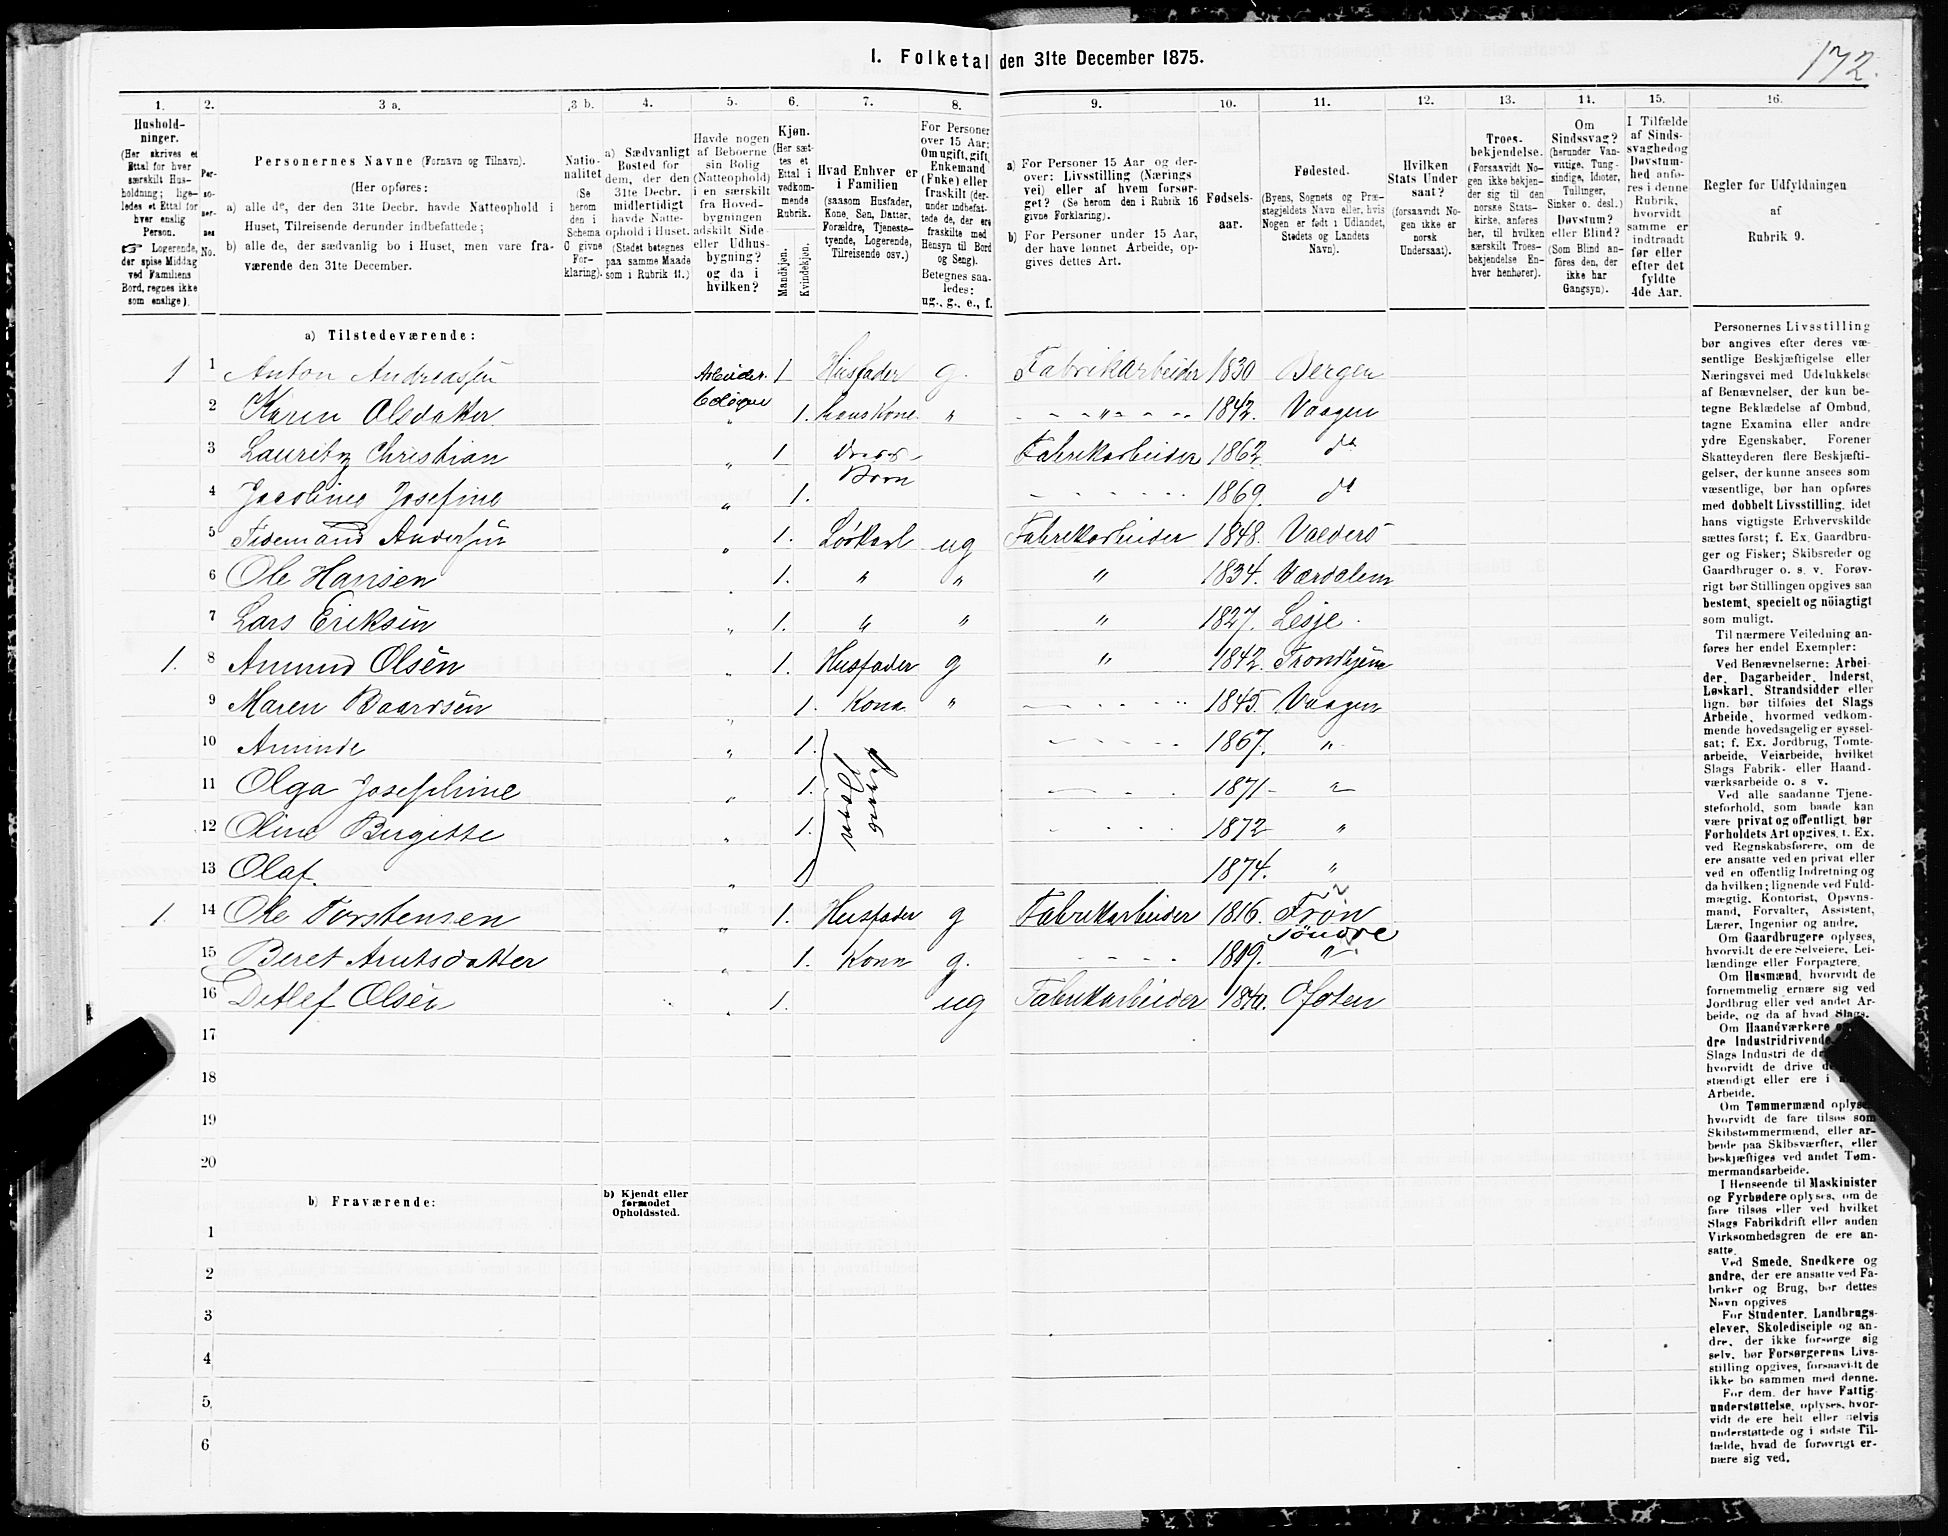 I. Folketal den 31te December 1875.
172.
1. 2. 3 a. 3 b. 4. 5. 6. 7. 8. 9. 10. 11. 12. 13. 14. 15. 16.
Hushold-
ninger.
(Her skrives et
Ettal for hver
særskilt Hus-
holdning; lige-
ledes et Ettal for
hver enslig
Person.
☞ Logerende,
der spise Middag
ved Familiens
Bord, regnes ikke
som enslige).
Per-
so-
ner-
nes
No.
Personernes Navne (Fornavn og Tilnavn).
(Her opføres:
a) alle de, der den 31te Decbr. havde Natteophold i
Huset, Tilreisende derunder indbefattede;
b) alle de, der sædvanlig bo i Huset, men vare fra-
værende den 31te December.
Natio-
nalitet
(Se
herom
den i
Schema
C givne
For-
klaring).
a) Sædvanligt
Bosted for
dem, der den
31te Decbr.
midlertidigt
havde Natte-
ophold i Huset.
(Stedet betegnes
paa samme Maade
som i Rubrik 11.)
Havde nogen
af Beboerne
sin Bolig
(Natteophold)
i en særskilt
fra Hoved-
bygningen
adskilt Side-
eller Udhus-
bygning?
og da i
hvilken?
Kjøn.
(Her sæt-
tes et
Ettal i
vedkom-
mende
Rubrik.
Mandkjøn.
Kvindekjøn.
Hvad Enhver er
i Familien
(saasom Husfader,
Kone, Søn, Datter,
Forældre, Tjeneste-
tyende, Logerende,
Tilreisende osv.)
For Personer
over 15 Aar:
Om ugift, gift,
Enkemand
(Enke) eller
fraskilt (der-
under indbefat-
tede de, der ere
fraskilte med
Hensyn til Bord
og Seng).
Betegnes saa-
ledes:
ug., g., e., f.
a) For Personer 15 Aar og der-
over: Livsstilling (Nærings
vei) eller af hvem forsør-
get? (Se herom den i Rubrik 16
givne Forklaring).
b) For Personer under 15 Aar,
der have lønnet Arbeide, op-
gives dettes Art.
Fødsels-
aar.
Fødested.
(Byens, Sognets og Præ-
stegjeldets Navn eller, hvis
Nogen er født i Udlandet,
Stedets og Landets
Navn).
Hvilken
Stats Under
saat?
(forsaavidt No-
gen ikke er
norsk
Undersaat).
Troes-
bekjendelse.
(Forsaavidt No-
gen ikke bekjen-
der sig til den
norske Stats-
kirke, anføres
her, til hvilken
særskilt Troes-
bekjendelse En-
hver henhører).
Om
Sindssvag?
(herunder Van-
vittige, Tung-
sindige, Idioter,
Tullinger,
Sinker o. desl.)
Døvstum?
eller Blind?
(Som Blind an-
føres den, der
ikke har
Gangsyn).
I Tilfælde
af Sinds-
svaghed og
Døvstum-
hed anfø-
res i denne
Rubrik,
hvorvidt
samme er
indtraadt
før eller
efter det
fyldte
4de Aar.
Regler for Udfyldningen
af
Rubrik 9.
a) Tilstedeværende:
1 1 Anton Andreassen Arbeider- 1 Husfader g. Fabrikarbeider 1830 Bergen
2 Karen Olsdatter " 1. hans Kone " " 1842. Vaagen
3 Lauritz Christian " 1 Fabrikarbeider 1862. do
Børn
4 Jacobine Josefine " 1. 1869. do
5 Tidemand Andersen " 1. Løskarl ug Fabrikarbeider 1848. Valderö
6 Ole Hansen 1. " " " 1834. Værdalen
7 Lars Eriksen " 1. " " " 1827. Lesje.
1. 8 Amund Olsen " 1. Husfader g " 1842. Trondhjem
9 Maren Baardsen " 1. Kone " 1845. Vaagen
10 Aminde " 1. 1867. "
11 Olga Josephine " 1. 1871 "
12 Oline Birgitte " 1. 1872 "
13 Olaf. " 1 1874. "
1. 14 Ole Torstensen " 1. Husfader g Fabrikarbeider 1816. Frøn
søndre
15 Beret Arntsdatter " 1. Kone g. 1819. "
16 Detlef Olsen " 1. ug Fabrikarbeider 1840. Ofoten
17
18
19
20
b) Fraværende:
b) Kjendt eller
formodet
Opholdssted.
1
2
3
4
5
6
Personernes Livsstilling
bør angives efter deres væ-
sentlige Beskjæftigelse eller
Næringsvei med Udelukkelse
af Benævnelser, der kun be-
tegne Beklædelse af Ombud,
tagne Examina eller andre
ydre Egenskaber. Forener
Skatteyderen flere Beskjæfti-
gelser, der kunne ansees som
væsentlige, bør han opføres
med dobbelt Livsstilling, idet
hans vigtigste Erhvervskilde
sættes først; f. Ex. Gaardbru-
ger og Fisker; Skibsreder og
Gaardbruger o. s. v. Forøv-
rigt bør Stillingen opgives saa
bestemt, specielt og nöiagtigt
som muligt.
Til nærmere Veiledning an-
føres her endel Exempler:
Ved Benævnelserne: Arbei-
der, Dagarbeider, Inderst,
Løskarl, Strandsidder eller
lign. bør tilføies det Slags
Arbeide, hvormed vedkom-
mende hovedsagelig er syssel-
sat; f. Ex. Jordbrug, Tomte-
arbeide, Veiarbeide, hvilket
Slags Fabrik- eller Haand-
værksarbeide o. s. v.
Ved alle saadanne Tjene-
steforhold, som baade kan
være privat og offentligt, bør
Forholdets Art opgives, t. Ex.
ved Regnskabsførere, om de
ere ansatte ved en privat eller
ved en offentlig Indretning og
da hvilken; lignende ved Fuld-
mægtig, Kontorist, Opsyns-
mand, Forvalter, Assistent,
Lærer, Ingeniør og andre.
Om Gaardbrugere oplyses,
hvorvidt de ere Selveiere, Lei-
lændinge eller Forpagtere.
Om Husmænd, hvorvidt de
fornemmelig ernære sig ved
Jordbrug eller ved andet Ar-
beide, og da af hvad Slags.
Om Haandværkere
dre Industridrivende,
Slags Industri de
hvorvidt de drive
stændigt eller ere i
Arbeide.
Om Tømmermænd oplyses
hvorvidt de fare tilsøs som
Skibstømmermænd, eller ar-
beide paa Skibsværfter, eller
beskjæftiges ved andet Tøm-
mermandsarbeide.
I Henseende til Maskinister
og Fyrbødere oplyses, om de
fare tilsøs eller ved hvilket
Slags Fabrikdrift eller anden
Virksomhedsgren de ere an-
satte.
Ved Smede, Snedkere og
andre, der ere ansatte ved Fa-
briker og Brug, bør dettes
Navn opgives
For Studenter, Landbrugs-
elever, Skoledisciple og an-
dre, der ikke forsørge sig
selv, bør Forsørgerens Livs-
stilling opgives, forsaavidt de
ikke bo sammen med denne.
For dem, der have Fattig-
understøttelse, oplyses, hvor-
vidt de ere helt eller delvis
understøttede og i sidste Til-
fælde, hvad de forøvrigt er-
nære sig ved.